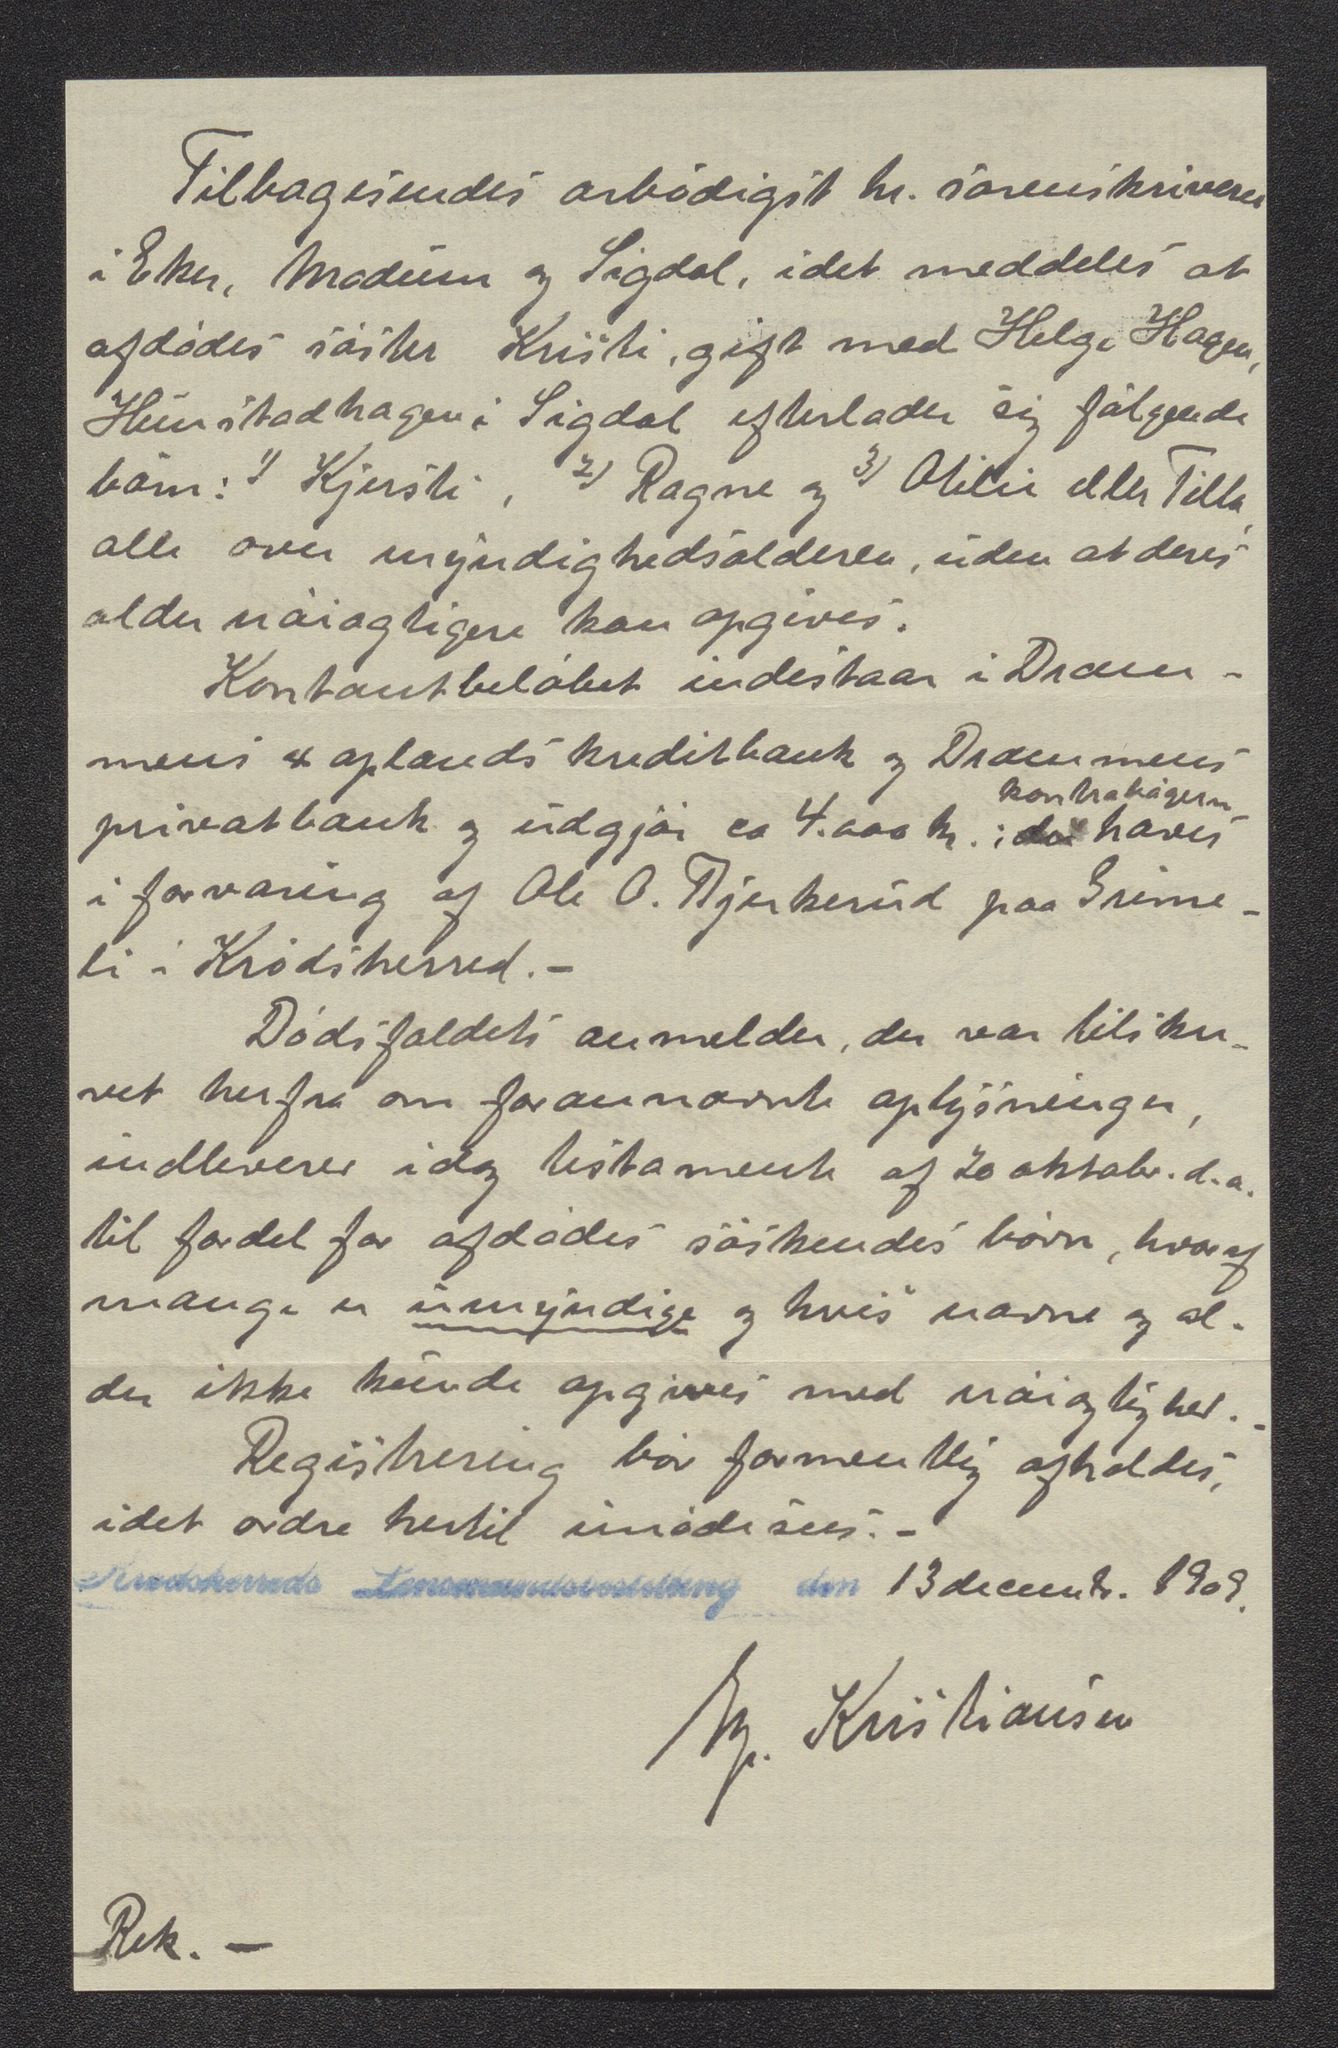 Tilbagesendes ærbödigst hr. sorenskriveren
i Eker, Modum og Sigdal, idet meddeles at
afdödes söster Kristi, gift med Helge Hagen,
Hunstadhagen i Sigdal efterlader sig fölgende
börn: 1) Kjersti, 2) Ragne og 3) Otilie eller Tilla,
alle over myndighedsalderen, uden at deres
alder nöiagtigere kan opgives.
Kontantbelöbet indestaar i Dram-
mens & oplands kreditbank og Drammens
privatbank og udgjör ca 4.000 kr.; kontrabögerne haves
i forvaring af Ole O. Bjerkerud paa Grime-
li i Krödsherred.-
Dödsfaldets anmelder, der var tilskre-
vet herfra om forannævnte oplysninger,
indleverer idag testamente af 20 oktobr. d.a.
til fordel for afdödes söskendes börn, hvoraf
mange er umyndige og hvis navne og al-
der ikke kunde opgives med nöiagtighed.-
Registrering bör formentlig afholdes,
idet ordre hertil imödesees.-
Krødsherreds Lensmandsbestilling den 13 decembr. 1909.
Kristiansen
Rek.-